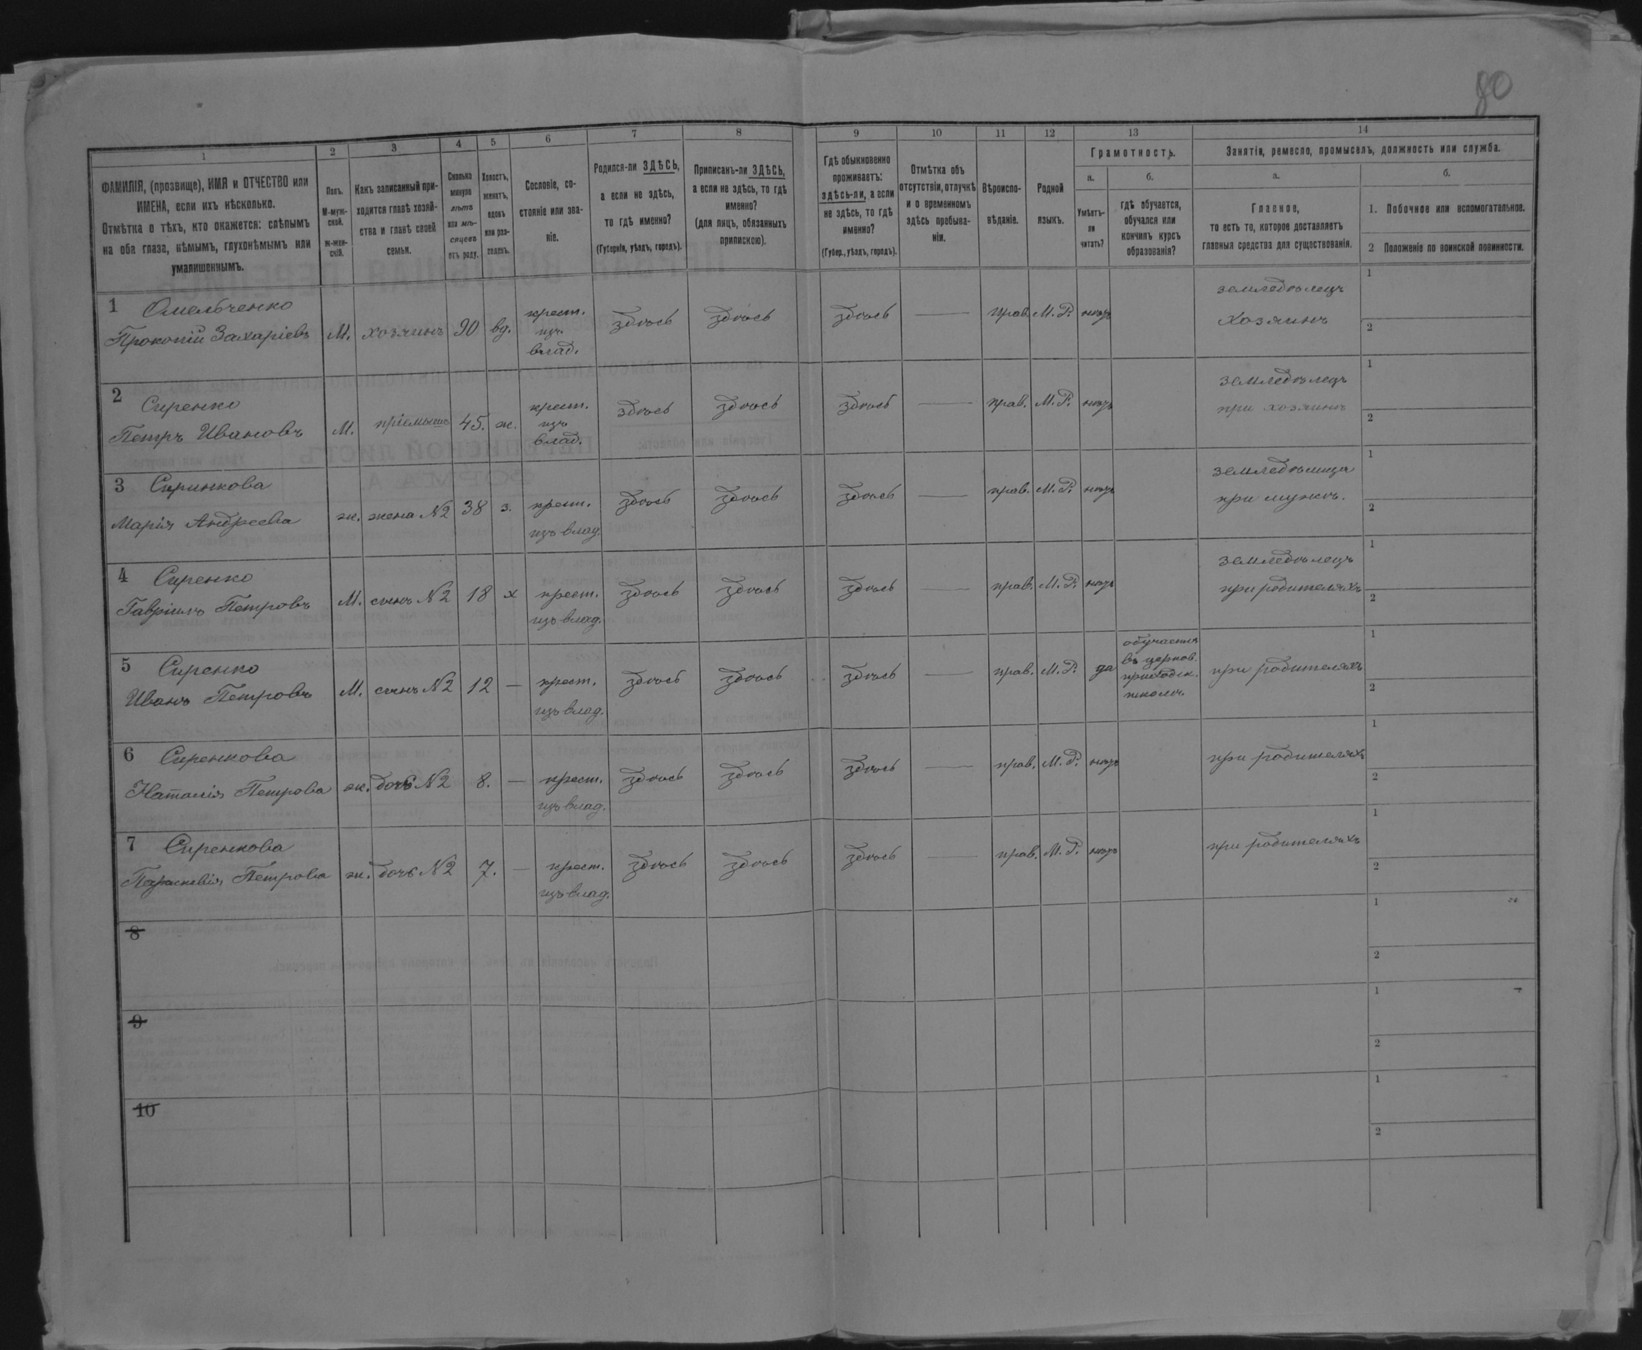 80
1 2 3 4 5 6 7 8 9 10 11 12 13 14
ФАМИЛІЯ, (прозвище), ИМЯ и ОТЧЕСТВО или
ИМЕНА, если ихъ нѣсколько.
Отмѣтка о тѣхъ, кто окажется: слѣпымъ
на оба глаза, нѣмымъ, глухонѣмымъ или
умалишеннымъ.
Полъ.
М-муж-
ской.
ж-жен-
скій.
Какъ записанный при-
ходится главѣ хозяй-
ства и главѣ своей
семьи.
Сколько
минуло
лѣтъ
или мѣ-
сяцевъ
отъ роду.
Холостъ,
женатъ,
вдовъ
или раз-
веденъ.
Сословіе, со-
стояніе или зва-
ніе.
Родился-ли ЗДѢСЬ,
а если не здѣсь,
то гдѣ именно?
(Губернія, уѣздъ, городъ).
Приписанъ-ли ЗДѢСЬ,
а если не здѣсь, то гдѣ
именно?
(для лицъ, обязанныхъ
припискою).
Гдѣ обыкновенно
проживаетъ:
здѣсь-ли, а если
не здѣсь, то гдѣ
именно?
(Губер., уѣздъ, городъ).
Отмѣтка объ
отсутствіи, отлучкѣ
и о временномъ
здѣсь пребыва-
ніи.
Вѣроиспо-
вѣданіе.
Родной
языкъ.
Грамотность.
а.
Умѣетъ-
ли
читать?
б.
гдѣ обучается,
обучался или
кончилъ курсъ
образованія?
Занятія, ремесло, промыселъ, должность или служба.
а.
Главное,
то есть то, которое доставляетъ
главныя средства для существованія.
б.
1. Побочное или вспомогательное.
2 Положеніе по воинской повинности.
1 Омельченко
Прокопій Захаріевъ М. хозяинъ 90 вд. крест. изъ влад. здѣсь здѣсь здѣсь — прав. М. Р. нѣтъ земледѣлецъ хозяинъ 1 2
2 Сиренко
Петръ Ивановъ М. пріемышъ 45. ж. крест. изъ влад. здѣсь здѣсь здѣсь — прав. М. Р. нѣтъ земледѣлецъ при хозяинѣ 1 2
3 Сиринкова
Марія Андреева ж. жена №2 38 з. крест. изъ влад. здѣсь здѣсь здѣсь — прав. М. Р. нѣтъ земледѣлица при мужѣ. 1 2
4 Сиренко
Гавріилъ Петровъ М. сынъ №2 18 х крест. изъ влад. здѣсь здѣсь здѣсь — прав. М. Р. нѣтъ земледѣлецъ при родителяхъ 1 2
5 Сиренко
Иванъ Петровъ М. сынъ №2 12 — крест. изъ влад. здѣсь здѣсь здѣсь — прав. М. Р. да обучается въ церков. приходск. школѣ при родителяхъ 1 2
6 Сиренкова
Наталія Петрова ж. дочь №2 8. — крест. изъ влад. здѣсь здѣсь здѣсь — прав. М. Р. нѣтъ при родителяхъ 1 2
7 Сиренкова
Параскевія Петрова ж. дочь №2 7. — крест. изъ влад. здѣсь здѣсь здѣсь — прав. М. Р. нѣтъ при родителяхъ 1 2
8 1 2
9 1 2
10 1 2